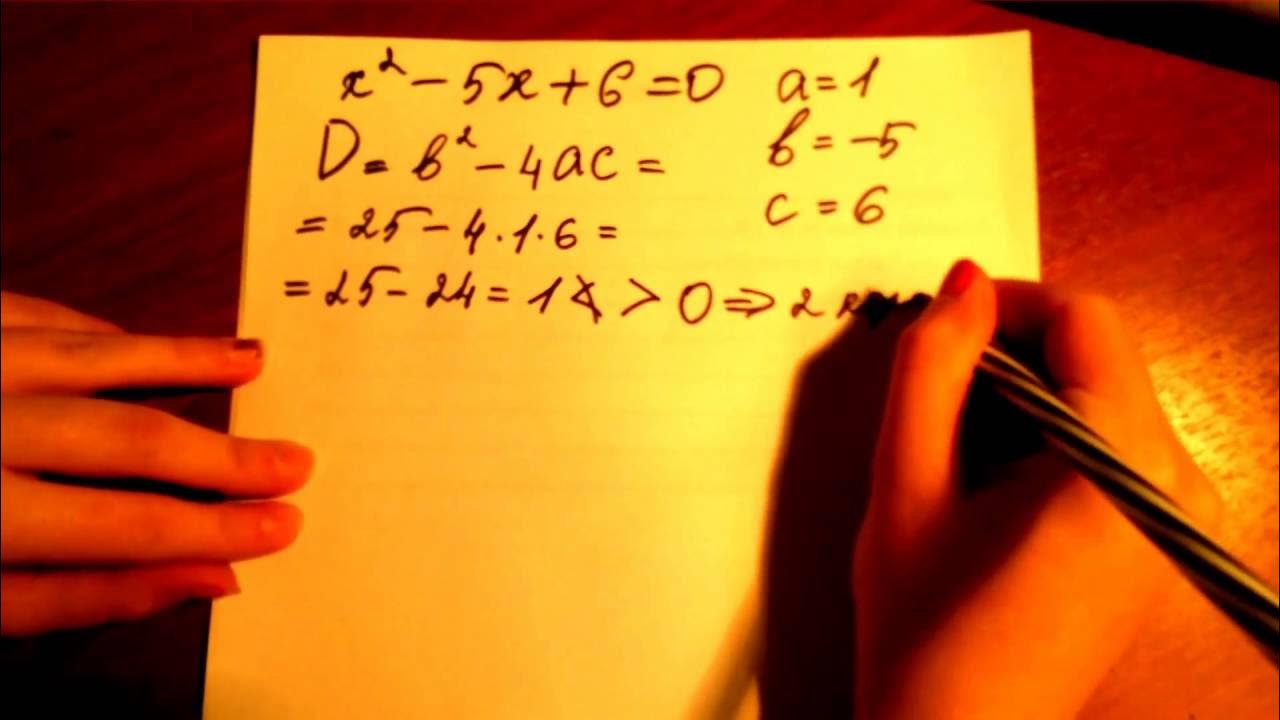 x² − 5x + 6 = 0
a = 1
D = b² − 4ac =
b = −5
= 25 − 4·1·6 =
c = 6
= 25 − 24 = 1 > 0 ⇒ 2